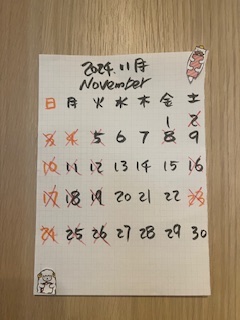 2024.11月
November
日 月 火 水 木 金 土
1 2
3 4 5 6 7 8 9
10 11 12 13 14 15 16
17 18 19 20 21 22 23
24 25 26 27 28 29 30